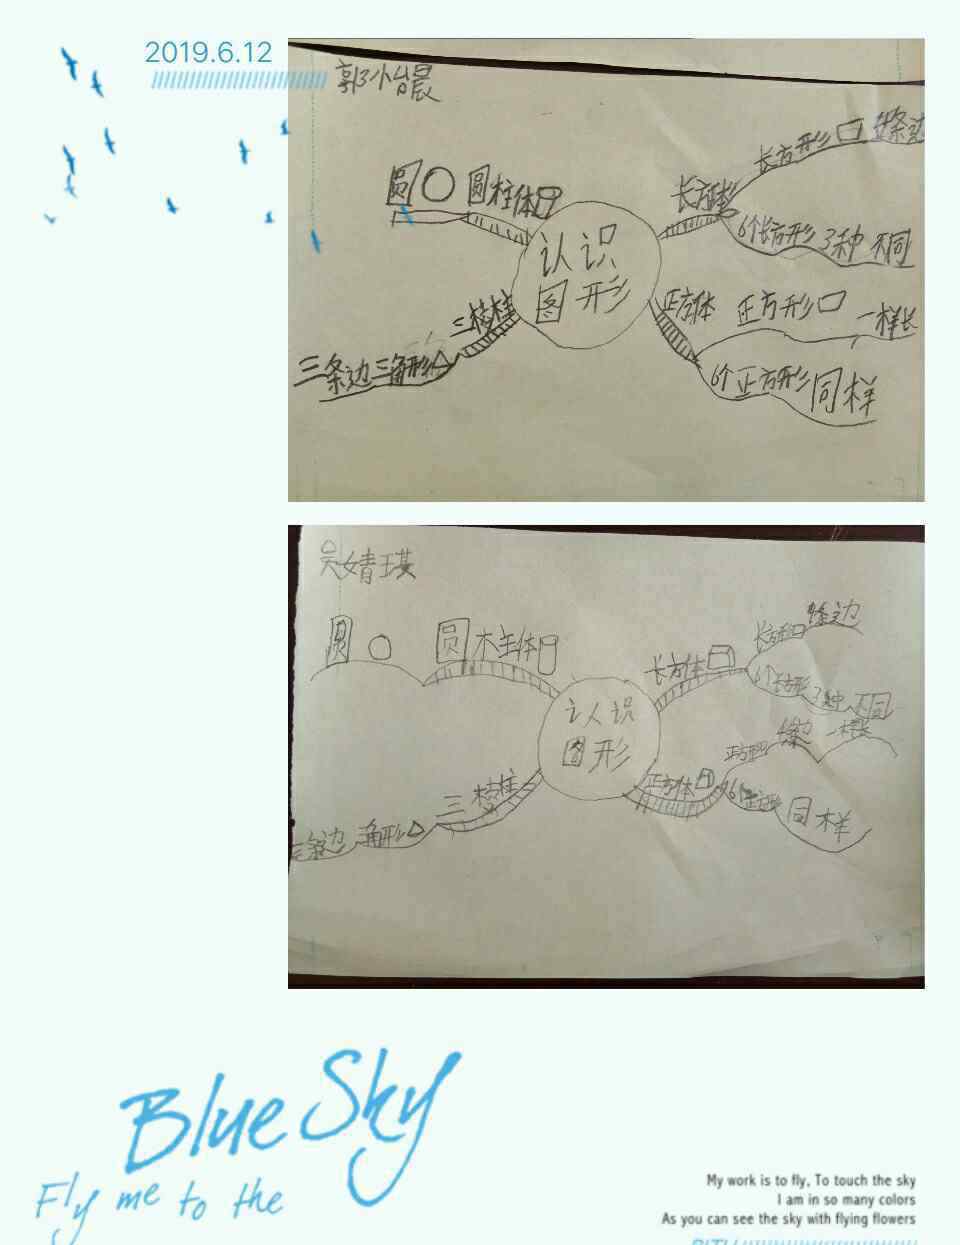 2019.6.12
圆 圆柱体
认识
图形
长方体
长方形 4条边
6个长方形 3种 不同
正方体 正方形 一样长
6个正方形 同样
三棱柱
三条边 三角形
吴婧琪
圆 圆柱体
认识
图形
长方体
长方形 4条边
6个长方形 3种 不同
正方体
正方形 4条边 一样长
6个正方形 同样
三棱柱
三条边 三角形
Blue Sky
Fly me to the
My work is to fly, To touch the sky
I am in so many colors
As you can see the sky with flying flowers